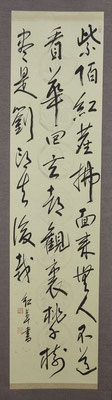 紫陌紅塵拂面来無人不道
看華回玄都観裏桃千樹
尽是劉郎去後栽